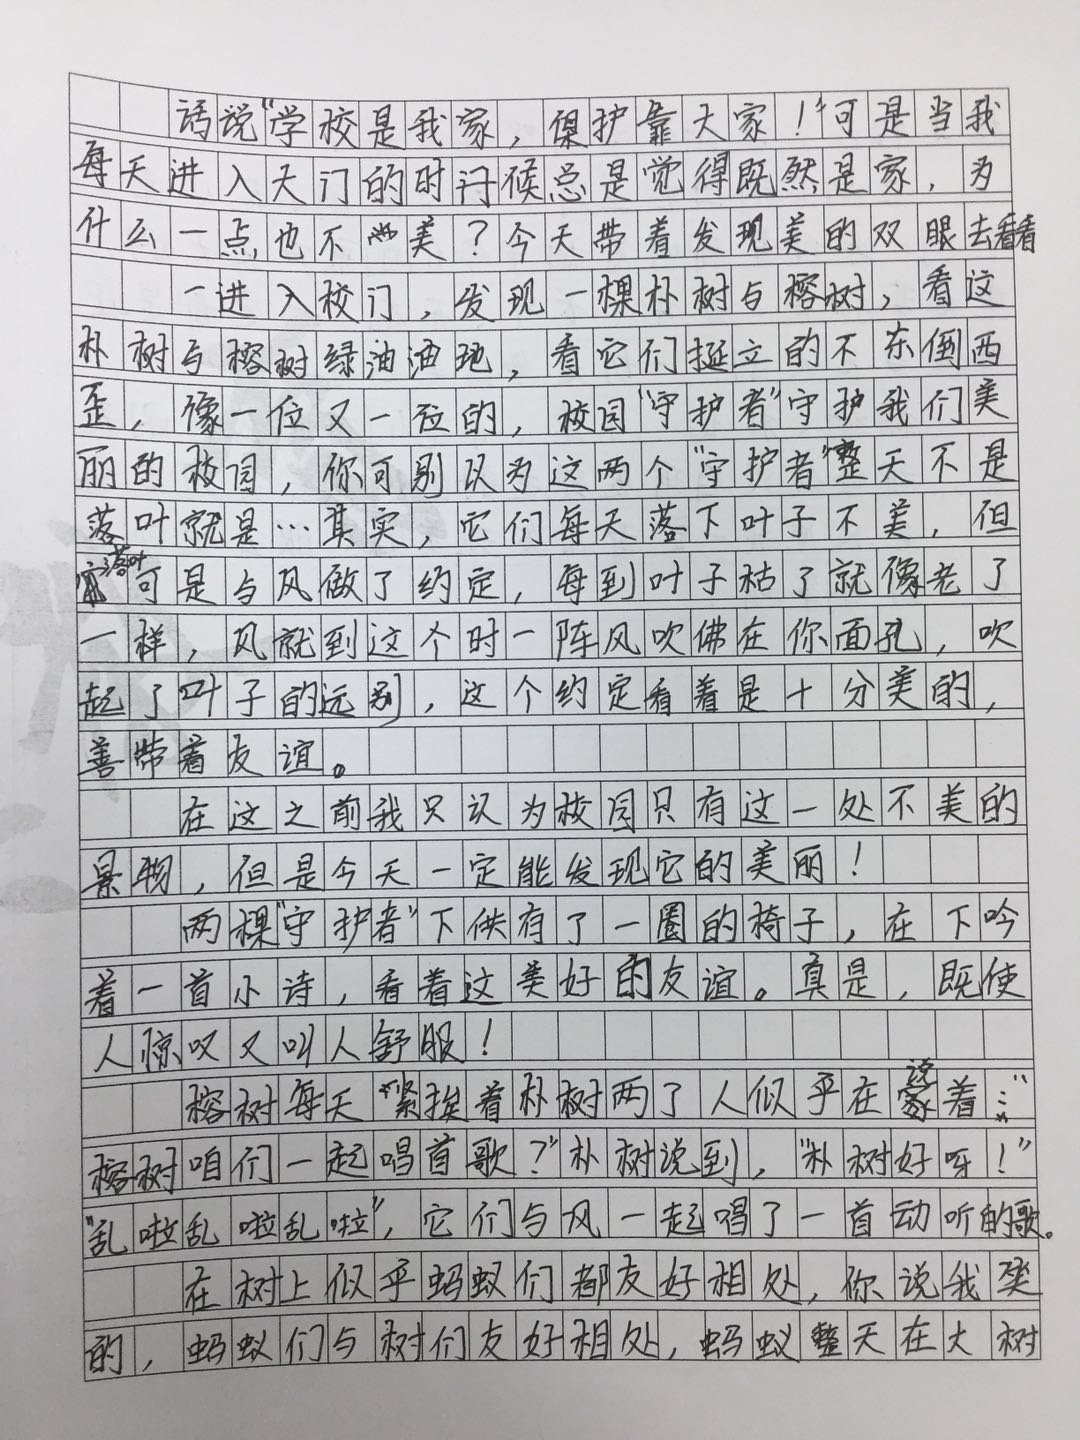 话说“学校是我家，保护靠大家！”可是当我
每天进入大门的时候总是觉得既然是家，为
什么一点也不美？今天带着发现美的双眼去看看
一进入校门，发现一棵朴树与榕树，看这
朴树与榕树绿油油地，看它们挺立的不东倒西
歪，像一位又一位的，校园“守护者”守护我们美
丽的校园，你可别以为这两个“守护者”整天不是
落叶就是…其实，它们每天落下叶子不美，但
落叶可是与风做了约定，每到叶子枯了就像老了
一样，风就到这个时一阵风吹佛在你面孔，吹
起了叶子的远别，这个约定看着是十分美的，
善带着友谊。
在这之前我只认为校园只有这一处不美的
景物，但是今天一定能发现它的美丽！
两棵“守护者”下供有了一圈的椅子，在下吟
着一首小诗，看着这美好的友谊。真是，既使
人惊叹又叫人舒服！
榕树每天紧挨着朴树两了人似乎在说着：“
榕树咱们一起唱首歌？”朴树说到，“朴树好呀！”
“乱啦乱啦乱啦”，它们与风一起唱了一首动听的歌。
在树上似乎蚂蚁们都友好相处，你说我
的，蚂蚁们与树们友好相处，蚂蚁整天在大树